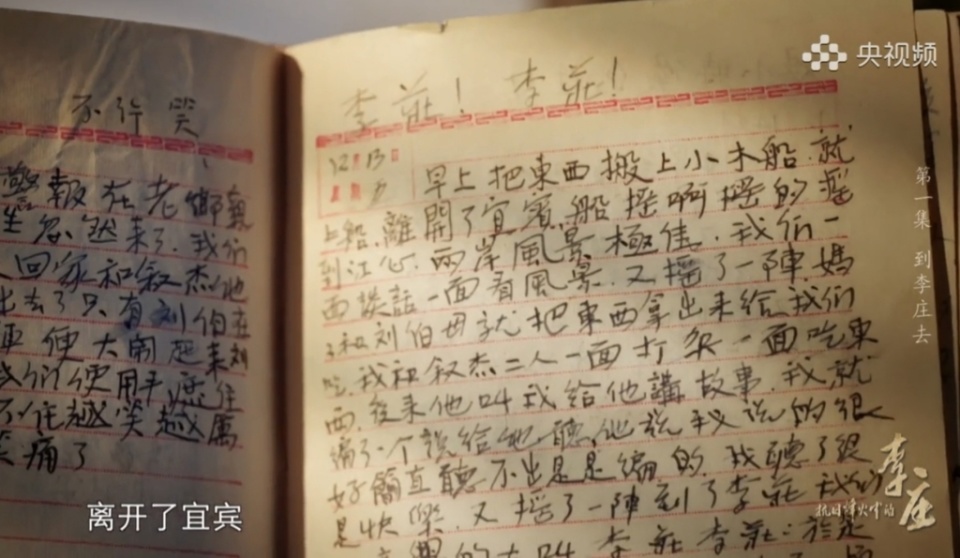 央视频
不许笑
警報在老鄉親
忽然来了.我们
回家和叙杰他
出去了只有刘伯在
便大闹起来刘
我们便用手遮住
不住越笑越厲
痛了
李莊!李莊!
12 13
早上把東西搬上小木船.就
上船.離開了宜賓.船搖啊搖的搖
到江心.兩岸風景極佳.我们一
面談話一面看風景.又搖了一陣.媽
和刘伯母就把東西拿出来给我们
吃.我和叙杰二人一面打灸一面吃東
西.後来他叫我给他講故事.我就
编了个說给他聽.他說我说的很
好簡直聽不出是是编的.我聽了很
是快樂.又搖了一陣到了李莊我们
的大叫李莊李莊.於是
第一集 到李庄去
抗日烽火中的
李庄
离开了宜宾